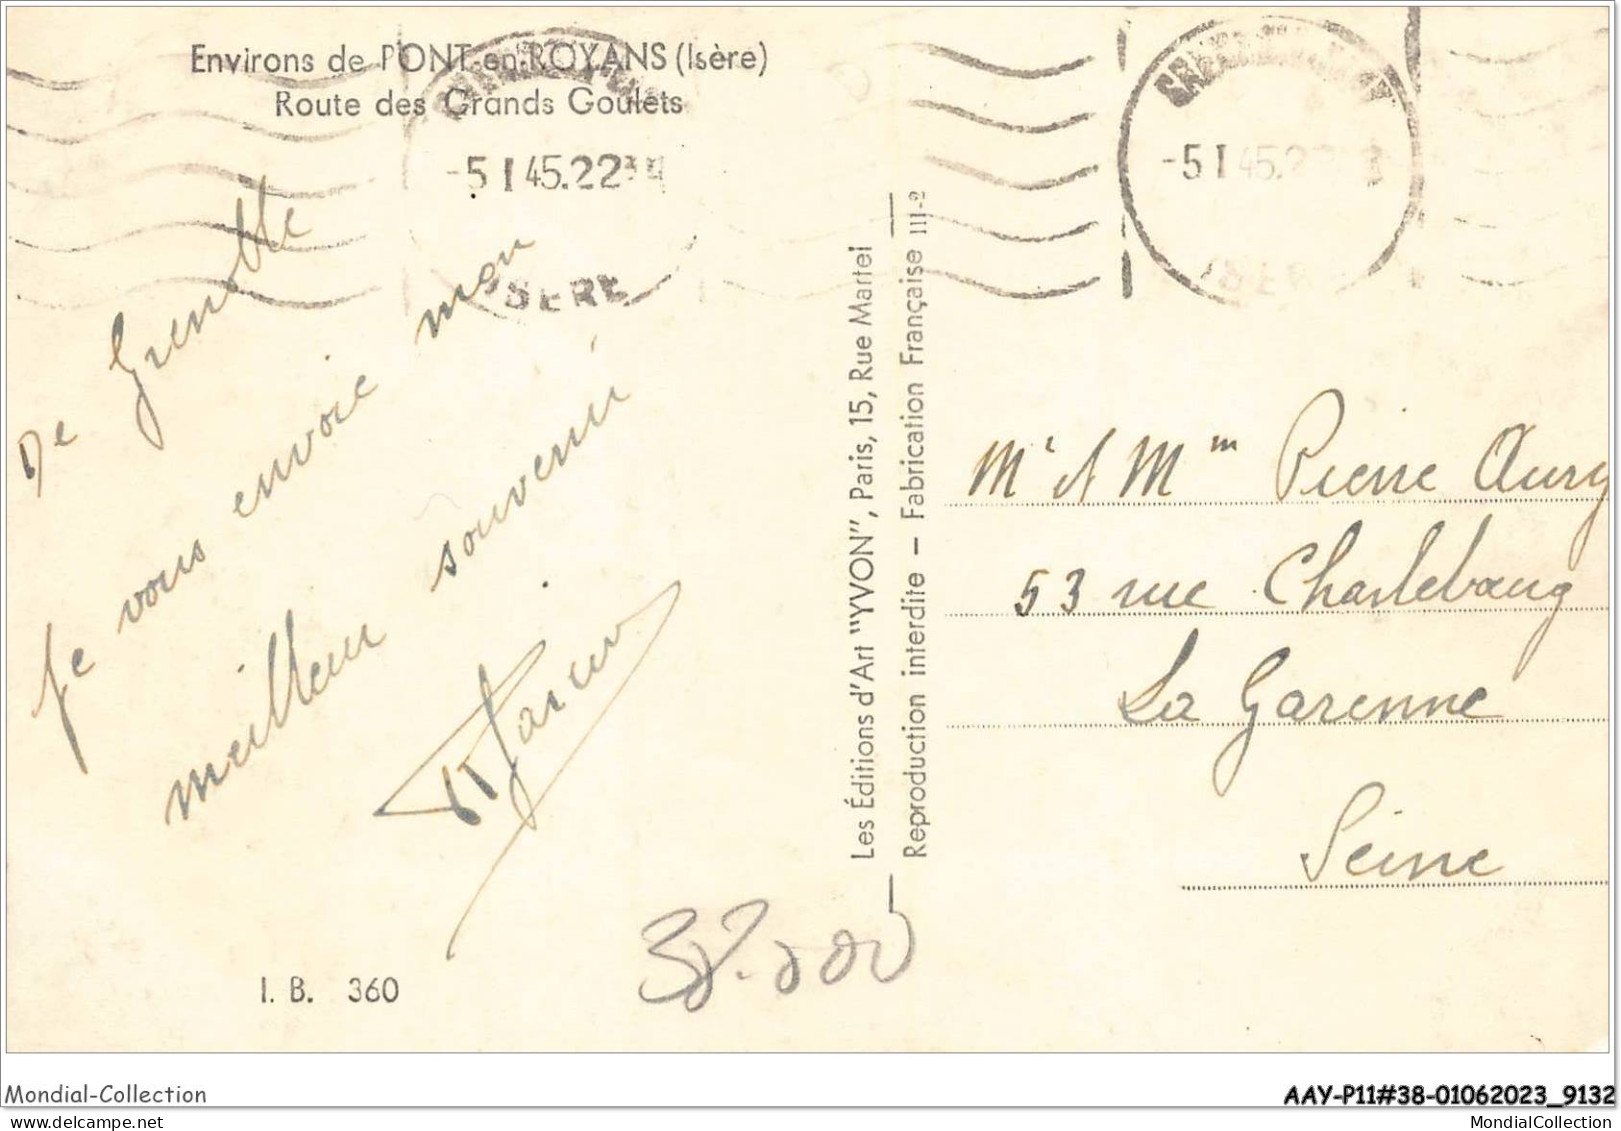 Environs de PONT-en-ROYANS (Isère)
Route des Grands Goulets
-5 I 45.22
ISERE
-5 I 45.22
De Grenoble
je vous envoie mon
meilleur souvenir
Les Éditions d'Art "YVON", Paris, 15, Rue Martel
Reproduction interdite — Fabrication Française III-2
Mr et Mme Pierre Aury
53 rue Charlebourg
La Garenne
Seine
I. B. 360
Mondial-Collection
AAY-P11#38-01062023_9132
MondialCollection